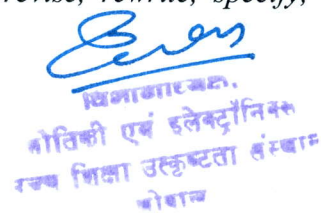 revise, rewrite, specify,
विभागाध्यक्ष,
भौतिकी एवं इलेक्ट्रॉनिक्स
उच्च शिक्षा उत्कृष्टता संस्थान
भोपाल